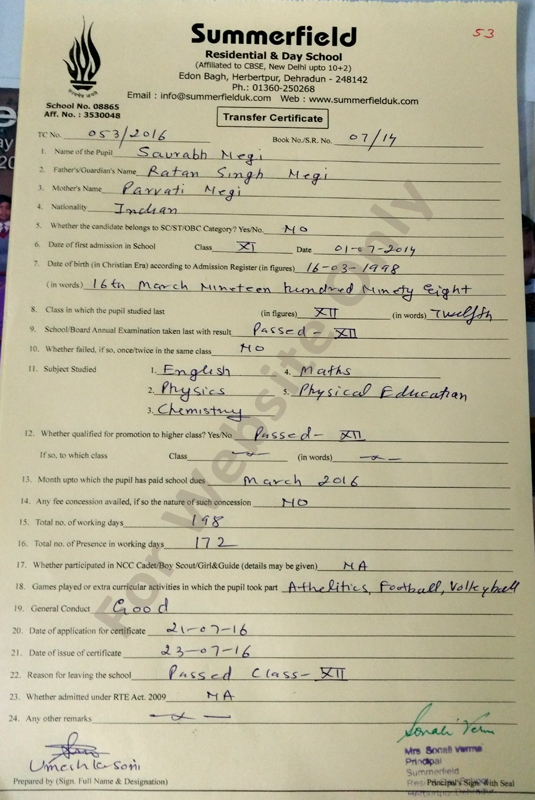 53
Summerfield
Residential & Day School
(Affiliated to CBSE, New Delhi upto 10+2)
Edon Bagh, Herbertpur, Dehradun - 248142
Ph.: 01360-250268
Email : info@summerfielduk.com Web : www.summerfielduk.com
School No. 08865
Aff. No. : 3530048
Transfer Certificate
TC No. 053/2016 Book No./S.R. No. 07/14
1. Name of the Pupil Saurabh Negi
2. Father's/Guardian's Name Ratan Singh Negi
3. Mother's Name Parvati Negi
4. Nationality Indian
5. Whether the candidate belongs to SC/ST/OBC Category? Yes/No. NO
6. Date of first admission in School Class XI Date 01-07-2014
7. Date of birth (in Christian Era) according to Admission Register (in figures) 16-03-1998
(in words) 16th March Nineteen hundred Ninety Eight
8. Class in which the pupil studied last (in figures) XII (in words) Twelfth
9. School/Board Annual Examination taken last with result Passed - XII
10. Whether failed, if so, once/twice in the same class NO
11. Subject Studied 1. English 4. Maths
2. Physics 5. Physical Education
3. Chemistry
12. Whether qualified for promotion to higher class? Yes/No Passed - XII
If so, to which class Class (in words)
13. Month upto which the pupil has paid school dues March 2016
14. Any fee concession availed, if so the nature of such concession NO
15. Total no. of working days 198
16. Total no. of Presence in working days 172
17. Whether participated in NCC Cadet/Boy Scout/Girl&Guide (details may be given) NA
18. Games played or extra curricular activities in which the pupil took part Athelitics, Football, Volleyball
19. General Conduct Good
20. Date of application for certificate 21-07-16
21. Date of issue of certificate 23-07-16
22. Reason for leaving the school Passed Class - XII
23. Whether admitted under RTE Act. 2009 NA
24. Any other remarks
Sonali Verma
Mrs Sonali Verma
Principal
Summerfield
Prepared by (Sign. Full Name & Designation) Principal's Sign. With Seal
For Website Only